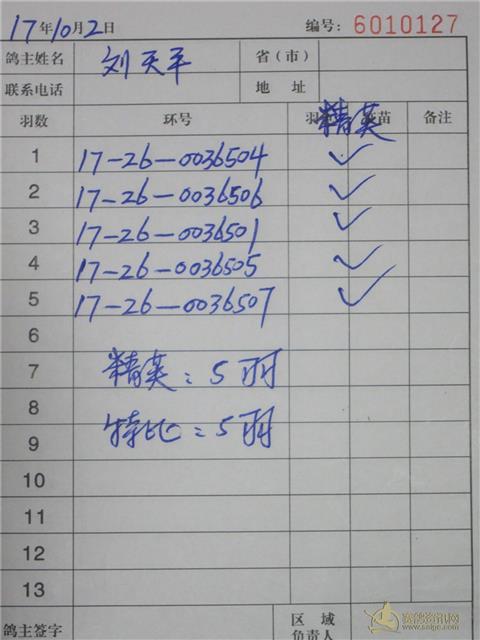 17年10月2日 编号: 6010127
鸽主姓名 刘天平 省(市)
联系电话 地 址
羽数 环号 羽 精英 苗 备注
1 17-26-0036504 ✓
2 17-26-0036506 ✓
3 17-26-0036501 ✓
4 17-26-0036505 ✓
5 17-26-0036507 ✓
6
7 精英:5羽
8
9 特比:5羽
10
11
12
13
鸽主签字 区 域
负责人
赛鸽资讯网
www.saige.com